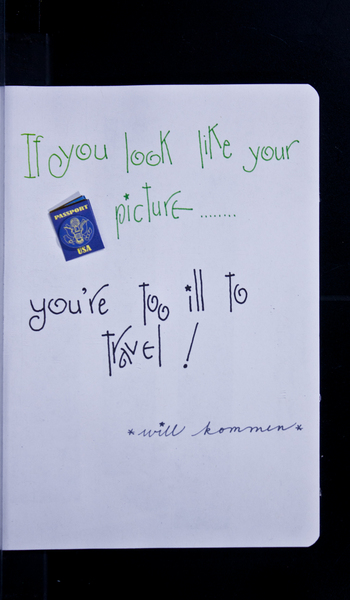 If you look like your
PASSPORT
USA
picture........
you're too ill to
travel!
*will kommen*